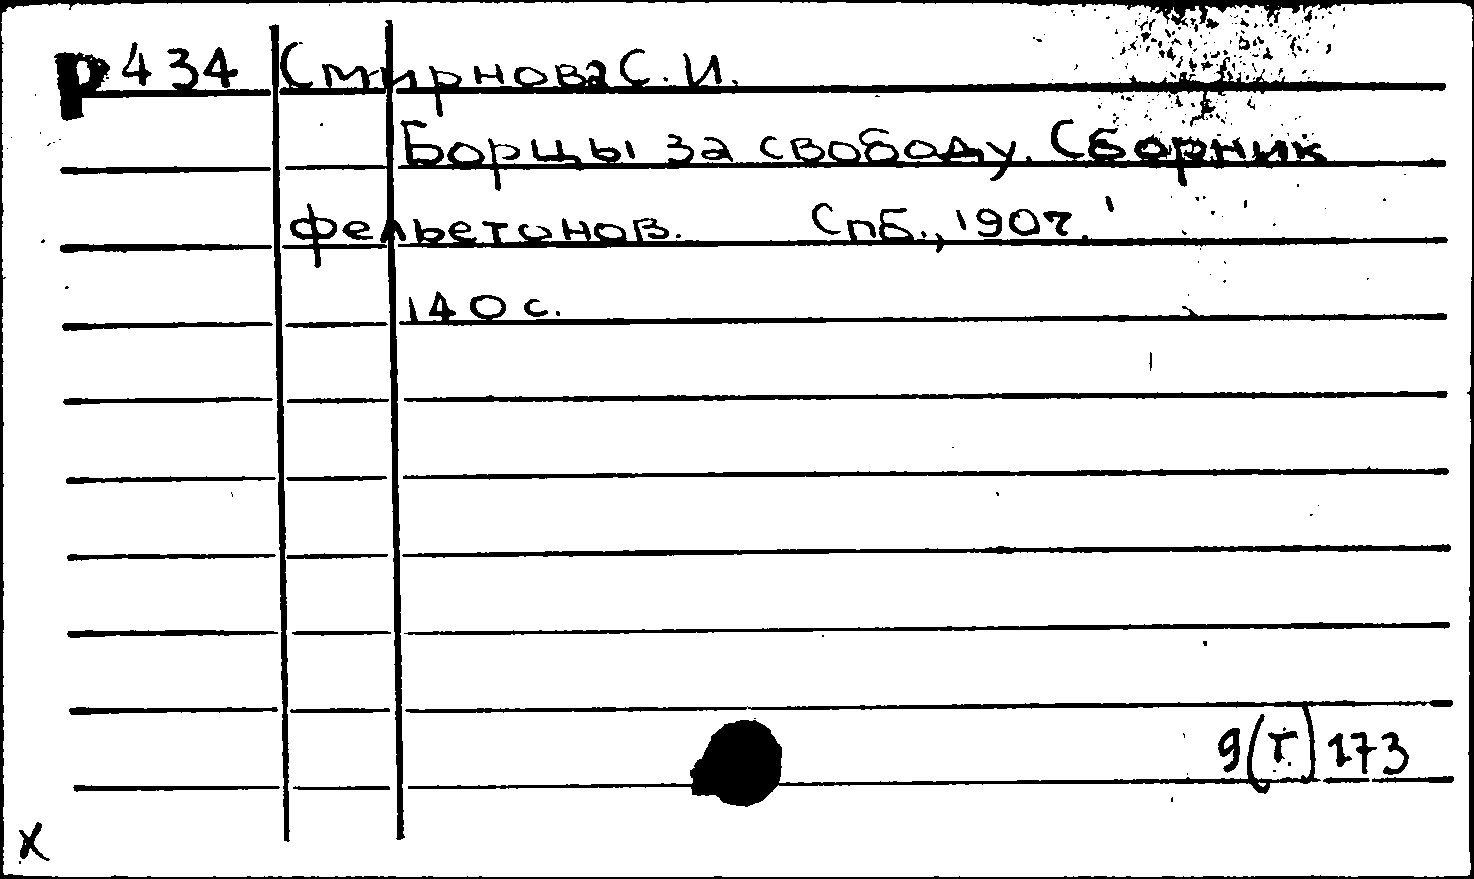 р434 Смирнова С. И.
Борцы за свободу. Сборник
фельетонов. Спб., 1907.
140 с.
9(Т)173
х